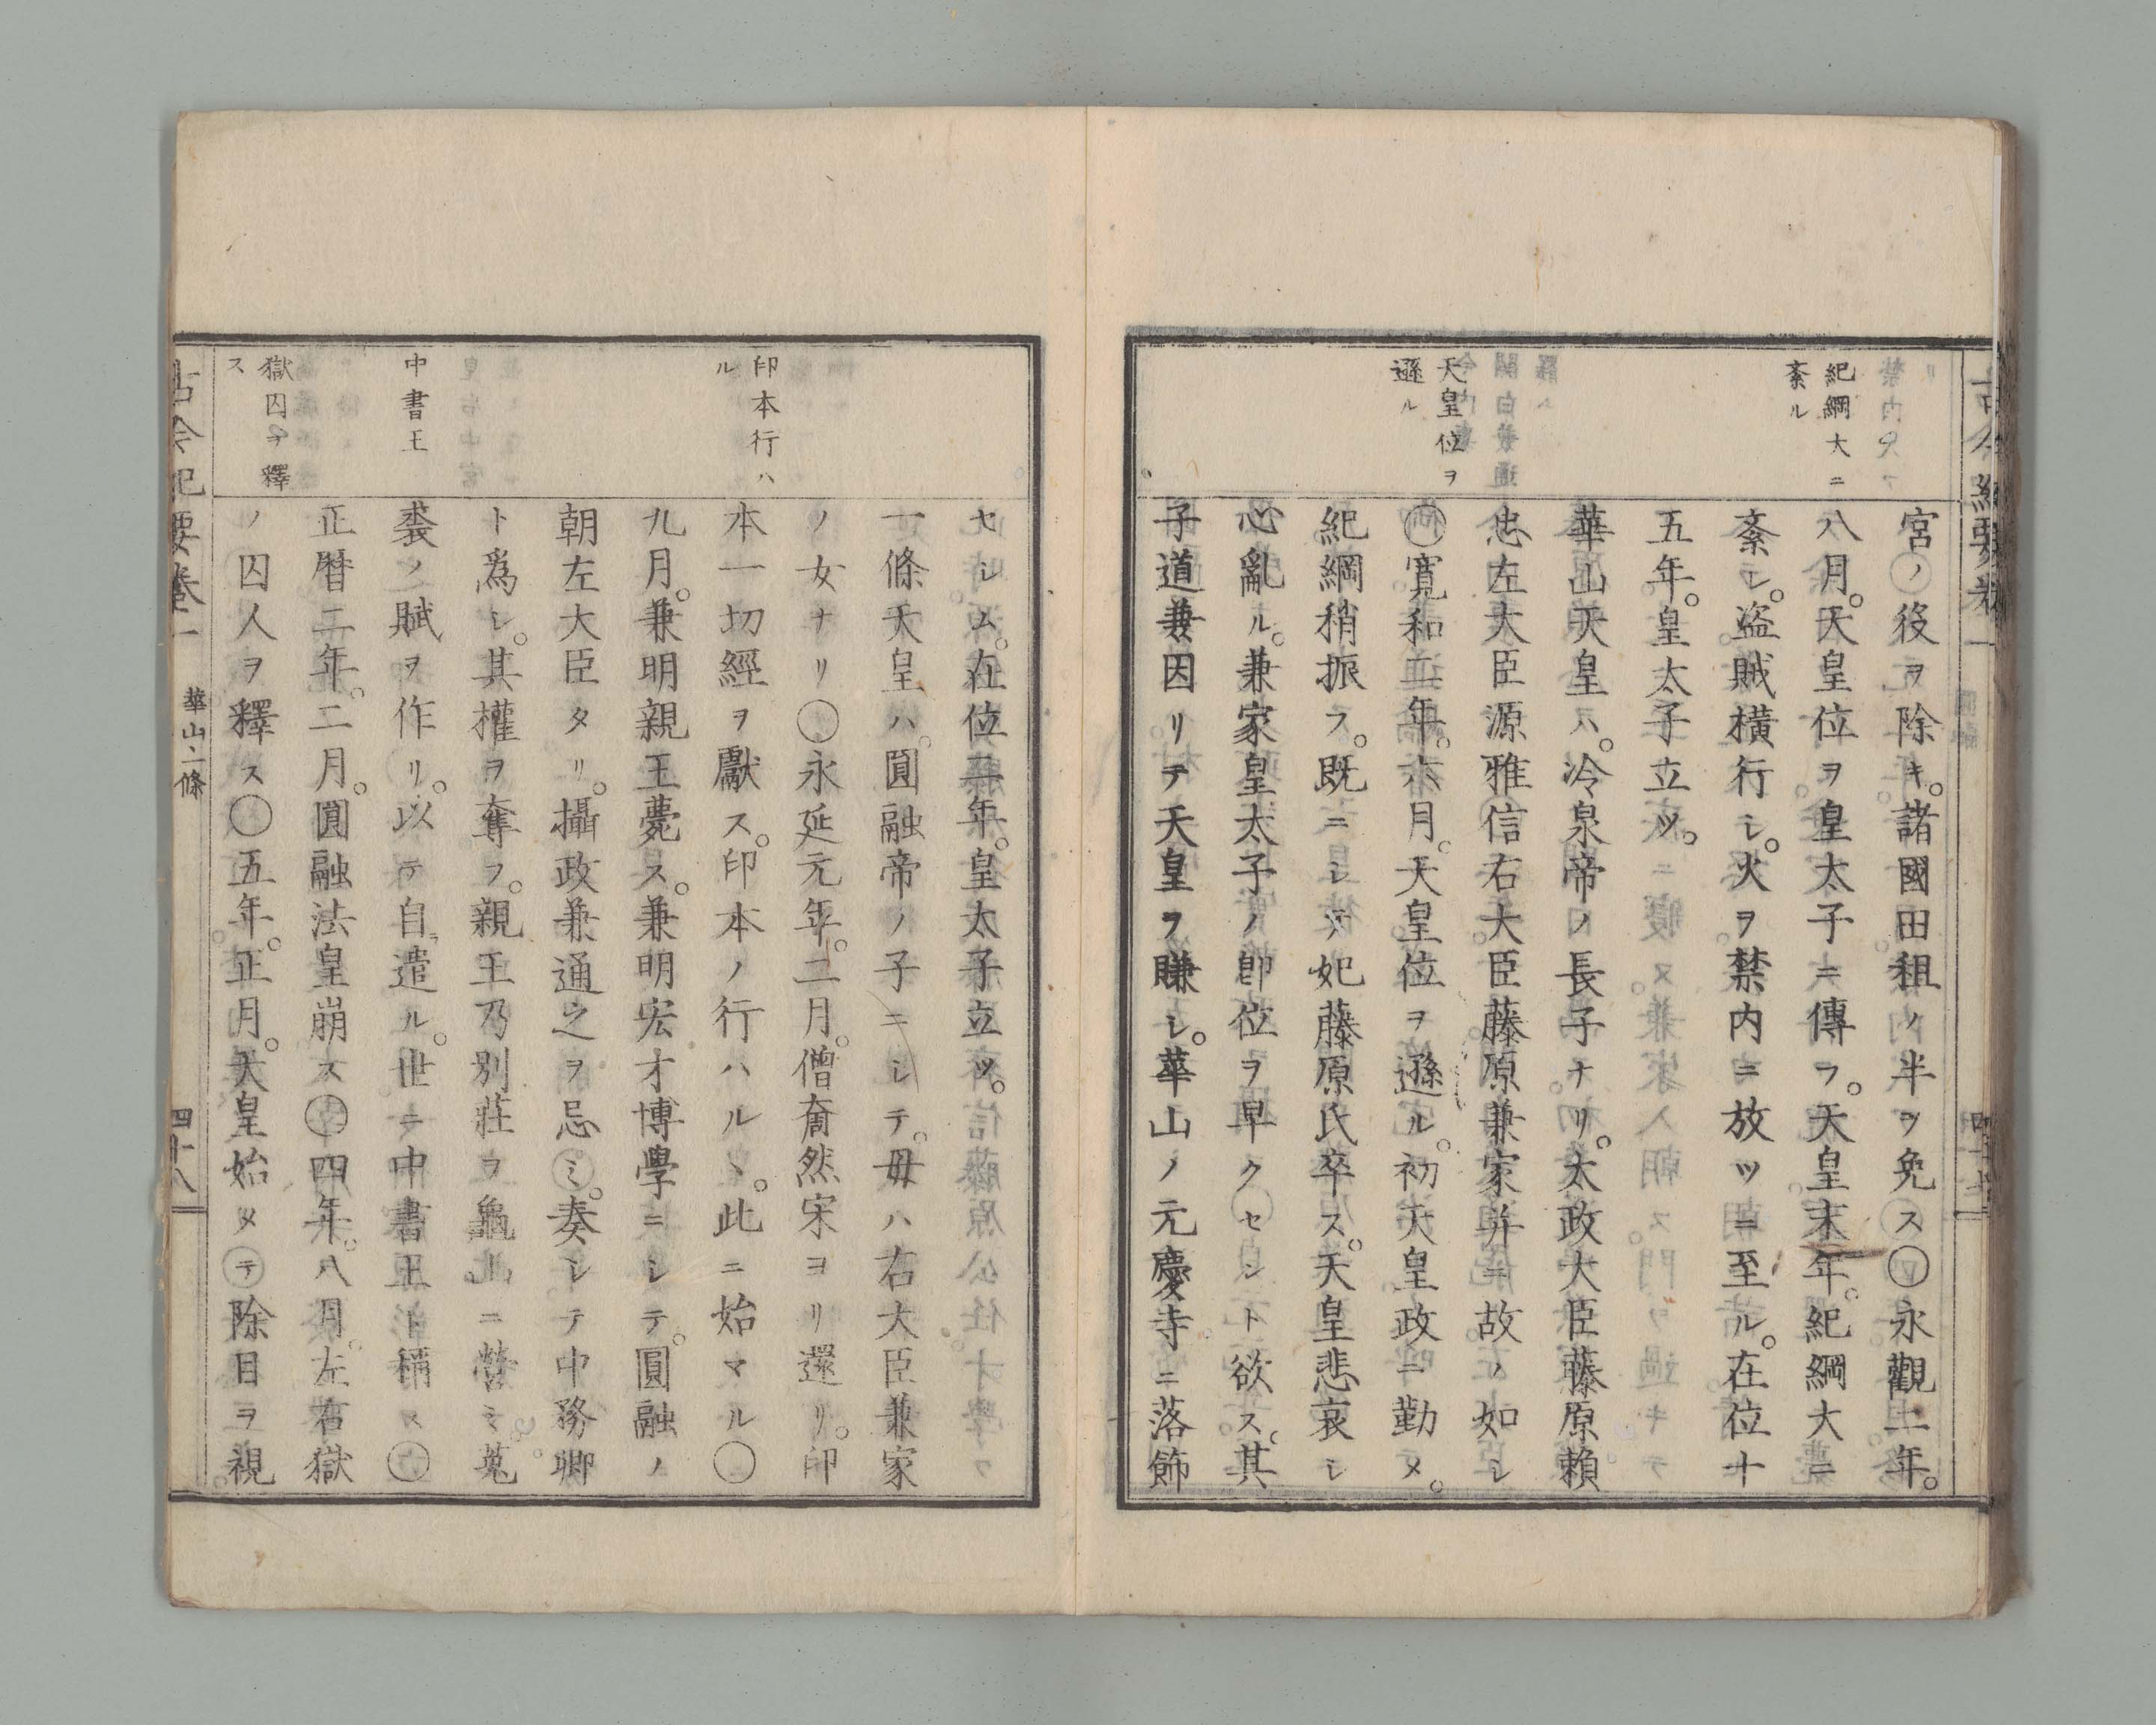 古今紀要卷一
紀綱大ニ
紊ル
天皇位ヲ
遜ル
宮ノ後ヲ除キ。諸國田租ノ半ヲ免ス○永觀二年。
八月。天皇位ヲ皇太子ニ傳フ。天皇末年。紀綱大ニ
紊レ。盜賊橫行シ。火ヲ禁內ニ放ツニ至ル。在位十
五年。皇太子立ツ。
華山天皇ハ。冷泉帝ノ長子ナリ。太政大臣藤原賴
忠左大臣源雅信右大臣藤原兼家並ニ故ノ如シ
○寬和二年。六月。天皇位ヲ遜ル。初天皇政ニ勤メ。
紀綱稍振フ。既ニシテ妃藤原氏卒ス。天皇悲哀シ
心亂ル。兼家皇太子ノ卽位ヲ早クセント欲ス。其
子道兼因リテ天皇ヲ賺シ。華山ノ元慶寺ニ落飾
印本行ハ
ル
中書王
獄囚ヲ釋
ス
セシム。在位二年。皇太子立ツ。
一條天皇ハ。圓融帝ノ子ニシテ。母ハ右大臣兼家
ノ女ナリ○永延元年。二月。僧奝然宋ヨリ還リ。印
本一切經ヲ獻ス。印本ノ行ハルヽ。此ニ始マル○
九月。兼明親王薨ス。兼明宏才博學ニシテ。圓融ノ
朝左大臣タリ。攝政兼通之ヲ忌ミ。奏シテ中務卿
ト爲シ。其權ヲ奪フ。親王乃別莊ヲ龜山ニ營ミ菟
裘ノ賦ヲ作リ。以テ自遣ル。世ニ中書王ト稱ス○
正曆二年。二月。圓融法皇崩ス○四年。八月。左右獄
ノ囚人ヲ釋ス○五年。正月。天皇始メテ除目ヲ視
古今紀要卷一
華山 一條
四十八